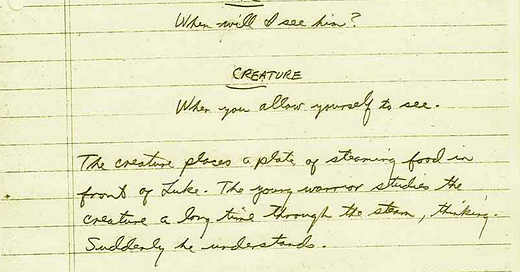 When will I see him?
CREATURE
When you allow yourself to see.
The creature places a plate of steaming food in
front of Luke. The young warrior studies the
creature a long time through the steam, thinking.
Suddenly he understands.